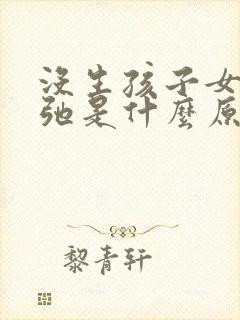 沒生孩子女
弛是什麼原
黎青轩